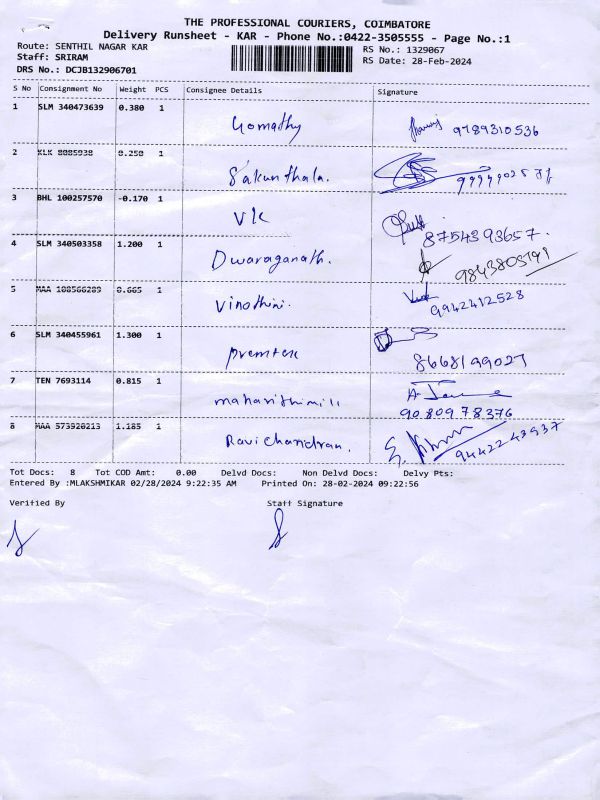 THE PROFESSIONAL COURIERS, COIMBATORE
Delivery Runsheet - KAR - Phone No.:0422-3505555 - Page No.:1
Route: SENTHIL NAGAR KAR
RS No.: 1329067
Staff: SRIRAM
RS Date: 28-Feb-2024
DRS No.: DCJB132906701
S No Consignment No Weight PCS Consignee Details Signature
1 SLM 340473639 0.380 1 Gomathy 9789310536
2 KLK 8085938 0.250 1 Sakunthala.
3 BHL 100257570 -0.170 1 VK 8754393657.
4 SLM 340503358 1.200 1 Dwaraganath.
5 MAA 108566289 0.665 1 Vinothini. 9942412528
6 SLM 340455961 1.300 1 premtex 8668199027
7 TEN 7693114 0.815 1 maharithimill 9080978376
8 MAA 573920213 1.185 1 Ravichandran. 9442243937
Tot Docs: 8 Tot COD Amt: 0.00 Delvd Docs: Non Delvd Docs: Delvy Pts:
Entered By :MLAKSHMIKAR 02/28/2024 9:22:35 AM Printed On: 28-02-2024 09:22:56
Verified By Staff Signature